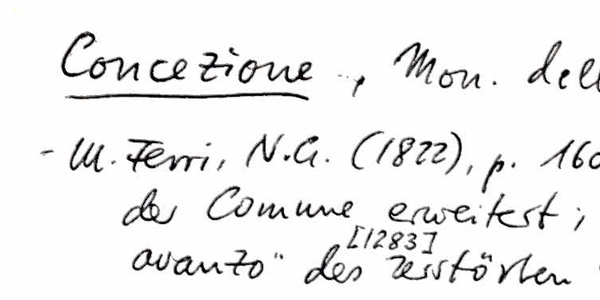 Concezione , Mon. dell
- M. Ferri, N.G. (1822), p. 160
der Comune erweitert;
[1283]
avanzo" des zerstörten